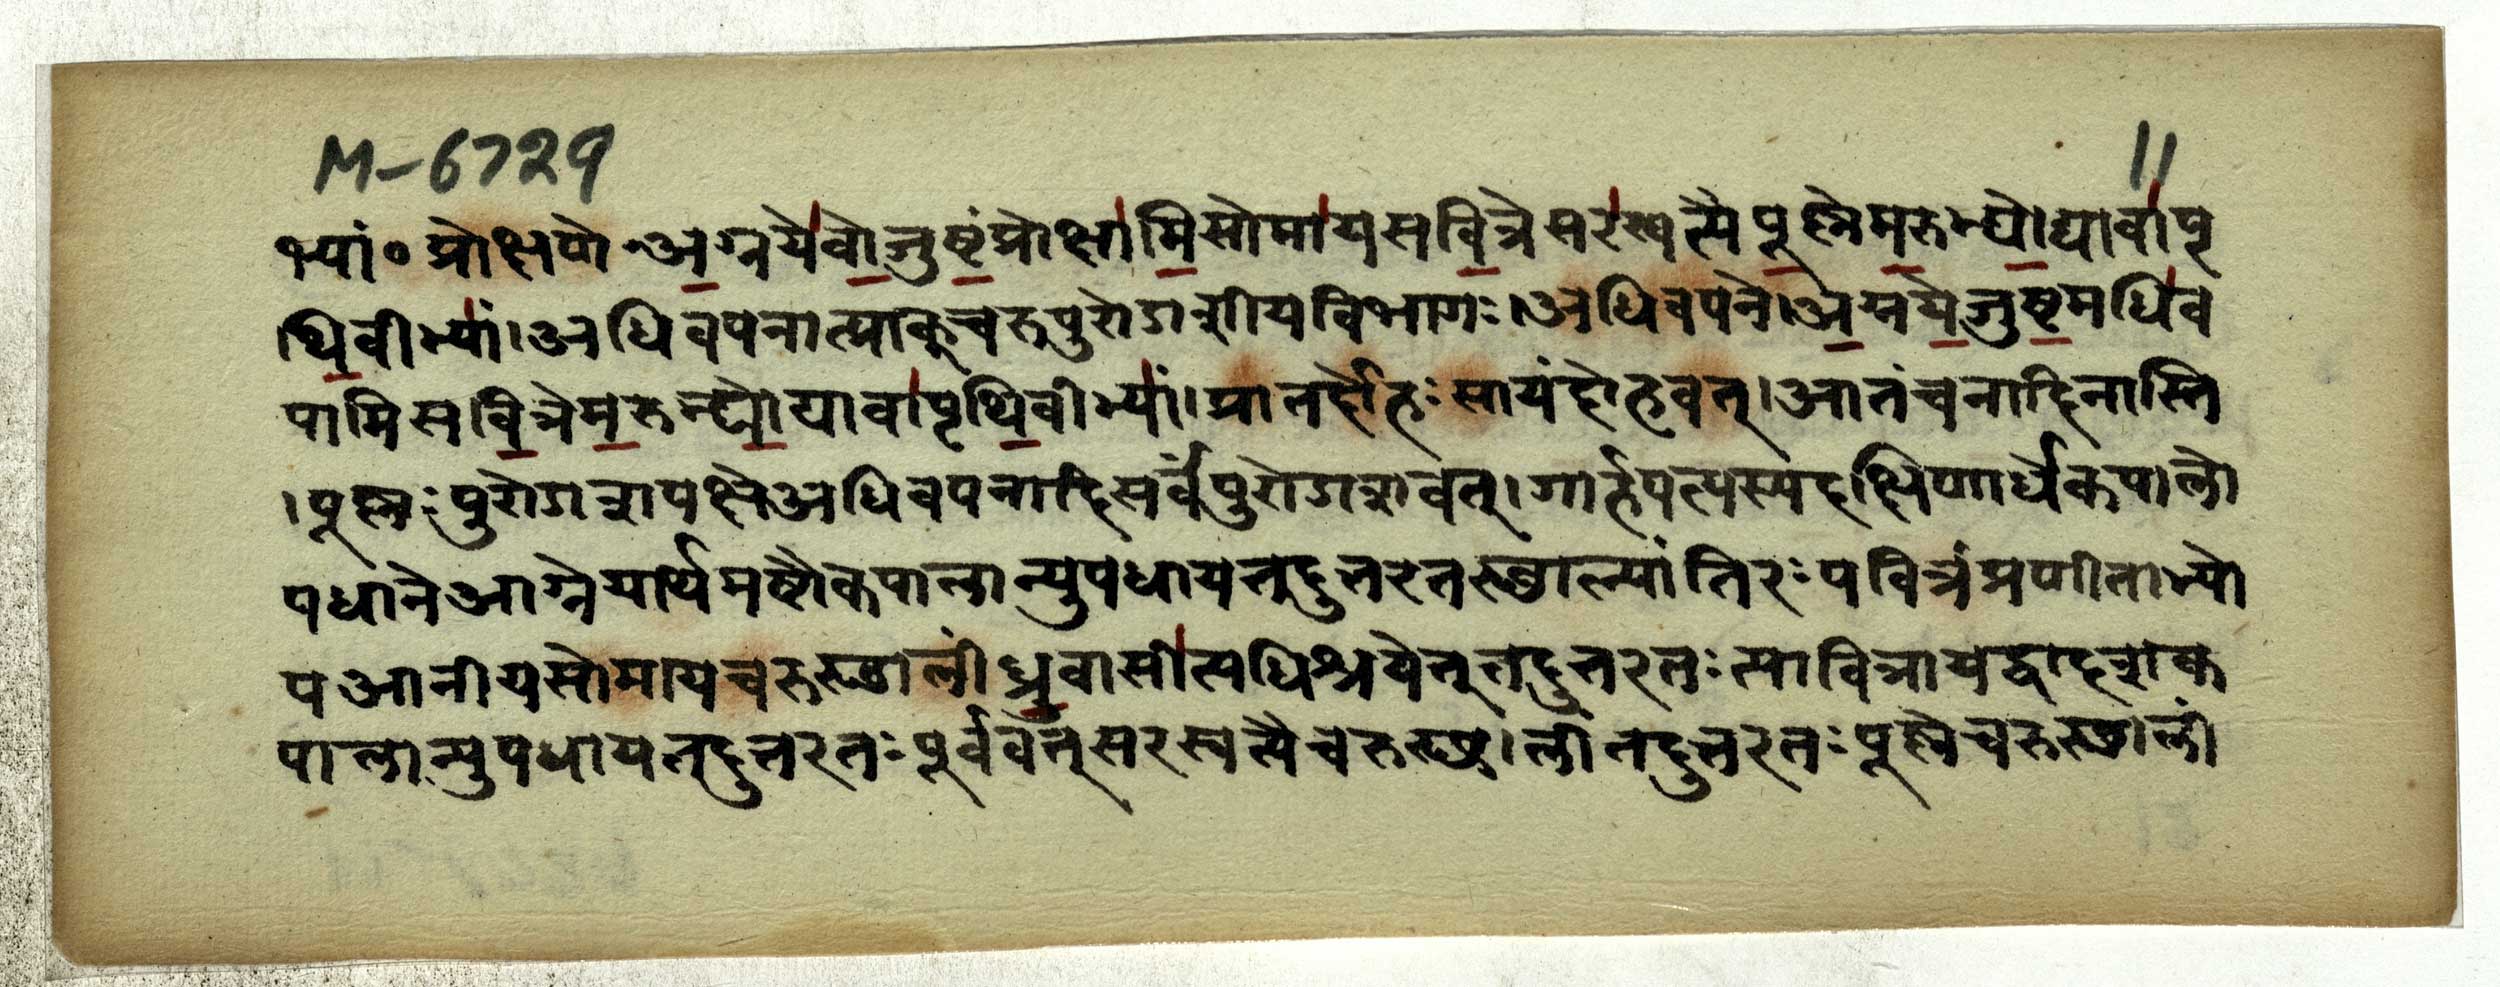 M-6729
11
भ्यां॰ प्रोक्षणे अग्नयेवोजुष्टंप्रोक्षामिसोमायसवित्रेसरस्वत्यैपूष्णेमरुभ्द्योद्यावापृ
थिवीभ्यां।अधिवपनात्प्राक्चरुपुरोडाशीयविभागः।अधिवपने।अग्नयेजुष्टमधिव
पामिसवित्रेमरुभ्द्योद्यावापृथिवीभ्यां।प्रातर्दोहः सायंदोहवत्।आतंचनादिनास्ति
।पूष्णः पुरोडाशपक्षेअधिवपनादिसर्वंपुरोडाशवत्।गार्हपत्यस्यदक्षिणार्धेकपालो
पधानेआग्नेयार्थमष्टौकपालान्युपधायतदुत्तरतस्स्थाल्यांतिरः पवित्रंप्रणीताभ्यो
पआनीयसोमायचरुस्थालींध्रुवासीत्यधिश्रयेत्तदुत्तरतः सावित्रायद्वादशक
पालान्युपधायतदुत्तरतः पूर्ववत्सरस्वत्यैचरुस्थालींतदुत्तरतः पूष्णेचरुस्थालीं